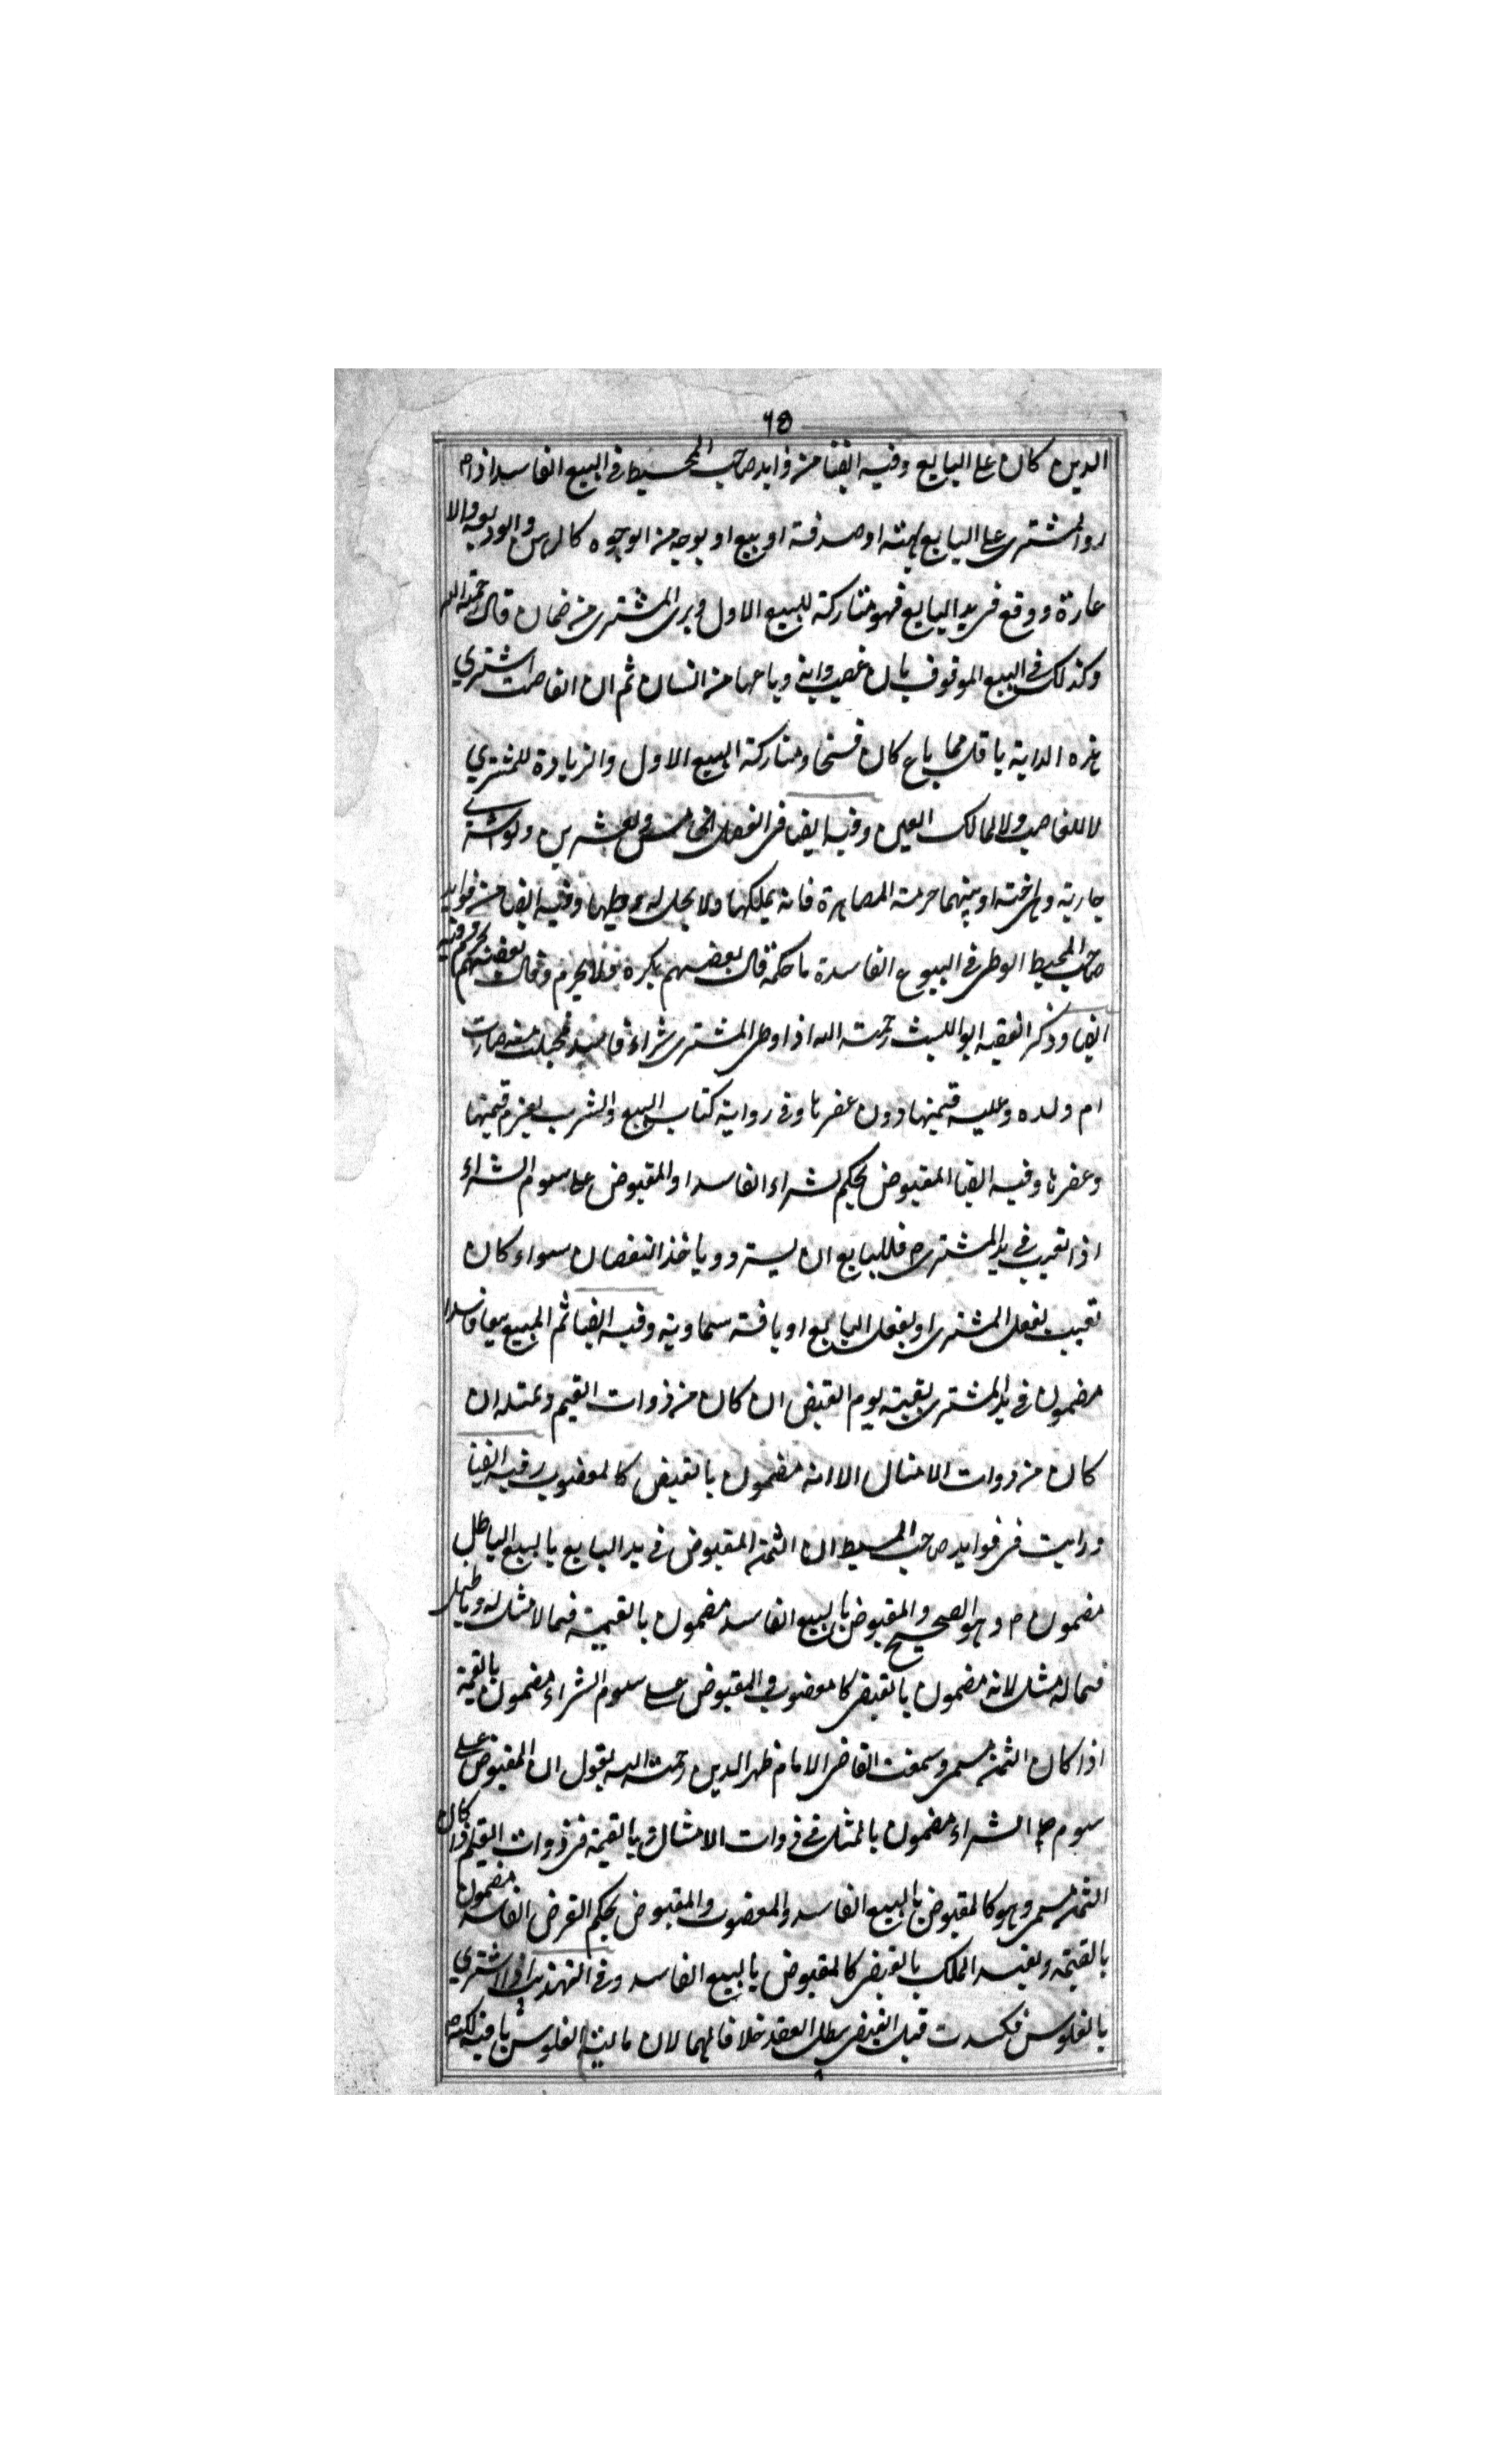 ٦٥
الدين كان على البايع وفيه ايضا من فوايد صاحب المحيط في البيع الفاسد اذا
رد المشترى على البايع بهبة او صدقة او بيع او بوجه من الوجوه كالرهن والوديعة والا
عارة ووقع فى يد البايع فهو متاركة للبيع الاول وبرى المشترى من ضمان قال رحمة الله
وكذلك في البيع الموقوف بان غصب دابة وباعها من انسان ثم ان الغاصب اشتري
هذه الدابة باقل مما باع كان فسخا ومتاركة البيع الاول والزيادة للمشتري
لا للغاصب ولا لمالك العين وفيه ايضا فى الفصل الخامس والعشرين ولو اشترى
جارية وهى اخته او بينهما حرمة المصاهرة فانه يملكها ولا يحل له وطيها وفيه ايضا من فوايد
صاحب المحيط الوطى في البيوع الفاسدة ما حكمه قال بعضهم يكره ولا يحرم وقال بعضهم يحرم وفيه
ايضا وذكر الفقيه ابو الليث رحمة الله اذا وطى المشترى شراء فاسد فحبلت منه صارت
ام ولده وعليه قيمتها دون عقرها وفى رواية كتاب البيع والشرب يغرم قيمتها
وعقرها وفيه ايضا المقبوض بحكم الشراء الفاسد او المقبوض على سوم الشراء
اذا تعيب في يد المشترى فللبايع ان يسترد وياخذ النقصان سواء كان
تعيب بفعل المشترى او بفعل البايع او بافة سماوية وفيه ايضا ثم المبيع بيعا فاسدا
مضمون في يد المشترى بقيمته يوم القبض ان كان من ذوات القيم وبمثله ان
كان من ذوات الامثال الا انه مضمون بالقبض كالمغصوب وفيه ايضا
ورايت فى فوايد صاحب المحيط ان الثمن المقبوض في يد البايع بالبيع الباطل
مضمون وهو الصحيح والمقبوض بالبيع الفاسد مضمون بالقيمة فيما لا مثل له
فيما له مثل لانه مضمون بالقبض كالمغصوب والمقبوض على سوم الشراء مضمون بالقيمة
اذا كان الثمن مسمى وسمعت القاضى الامام ظهر الدين رحمة الله يقول ان المقبوض على
سوم الشراء مضمون بالمثل في ذوات الامثال وبالقيمة فى ذوات القيم اذا كان
الثمن مسمى وهو كالمقبوض بالبيع الفاسد والمغصوب والمقبوض بحكم القرض الفاسد مضمون
بالقيمة ويفيد الملك بالقبض كالمقبوض بالبيع الفاسد وفى التهذيب اذا اشتري
بالفلوس فكسدت قبل القبض بطل العقد خلافا لهما لان مالية الفلوس باقية